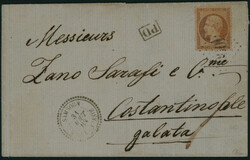 Messieurs
PD
Zano Sarafi e Cie
Constantinople
galata